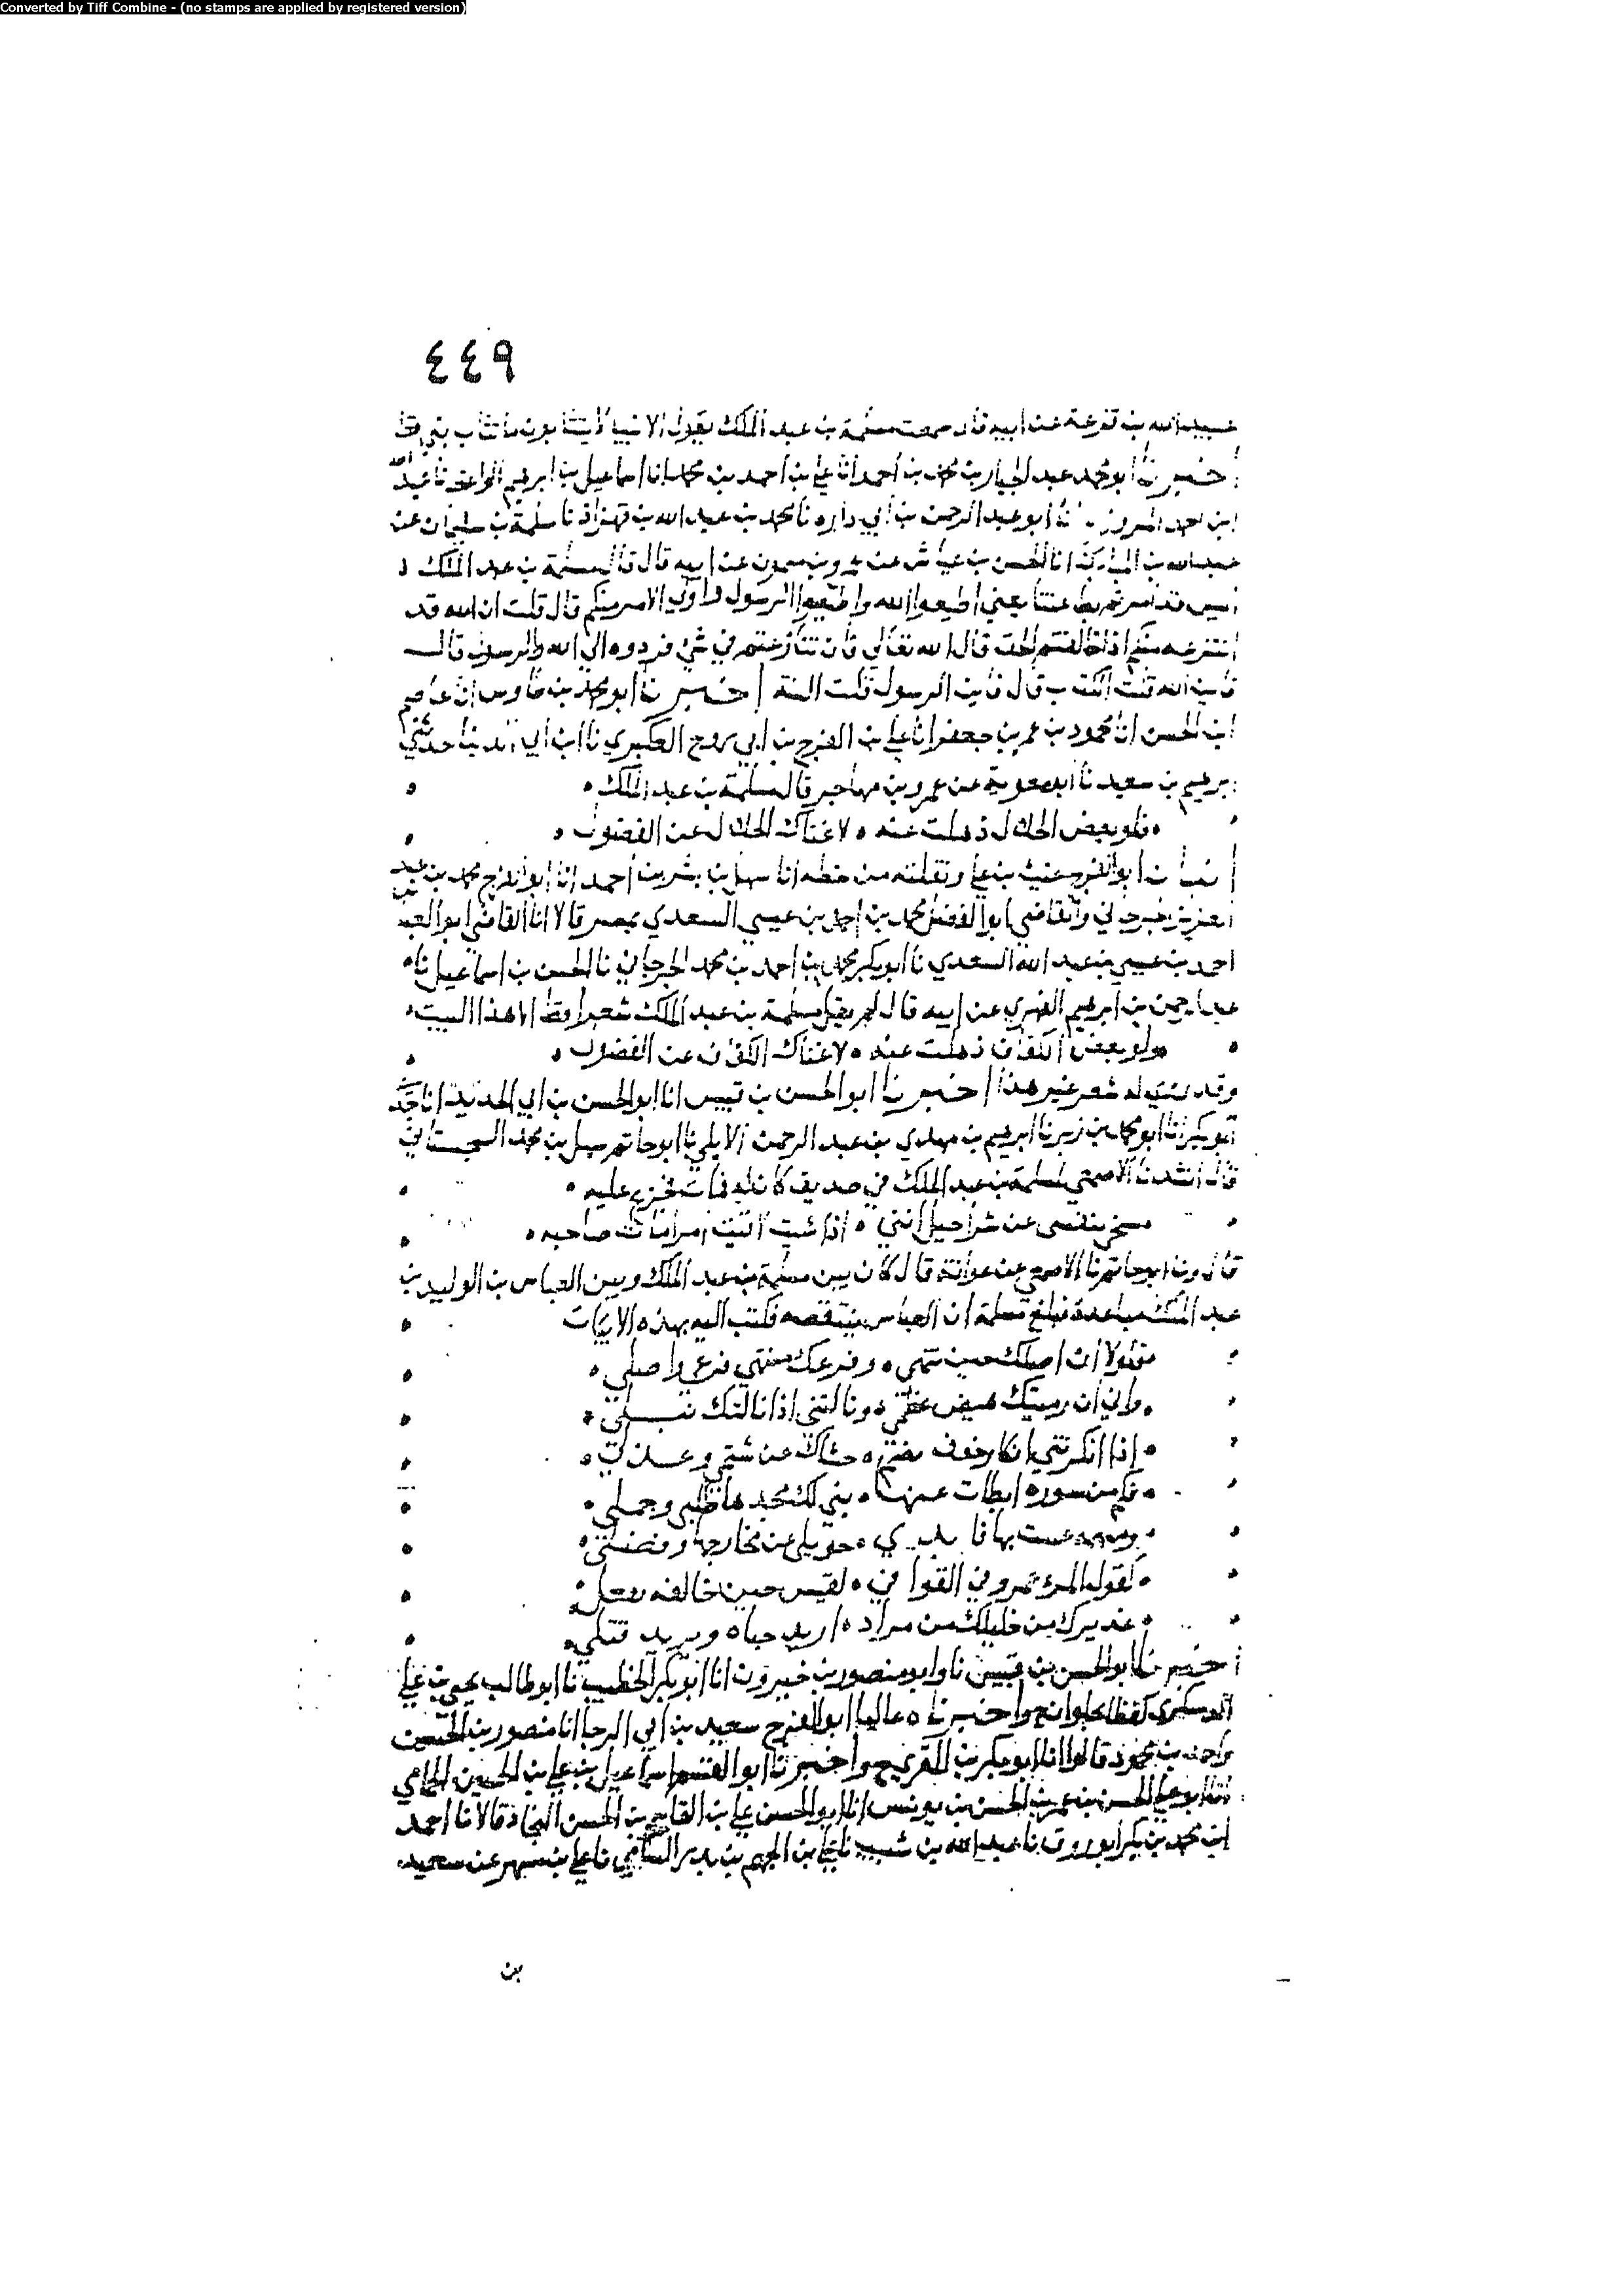 Converted by Tiff Combine - (no stamps are applied by registered version)
٤٤٩
عبيد الله بن قزعة عن ابيه قال سمعت مسلمة بن عبد الملك يقول الانبيا لا يتثابون ما تثاب نبي قط
اخبرنا ابو محمد عبد الجبار بن محمد بن احمد انا علي بن احمد بن محمد انا اسماعيل بن ابرهيم الواعظ نا عبد الله
ابن احمد ابو عبد الرحمن بن ابي داره نا محمد بن عبد الله بن قهزاذ نا سلمة بن سليمان عن
عبد الله بن المبارك انا الحسن بن عياش عن عمرو بن ميمون عن ابيه قال قال مسلمة بن عبد الملك
اليس قد امرتم بطاعتنا يعني اطيعوا الله واطيعوا الرسول واولي الامر منكم قال قلت ان الله قد
انتزعه منكم اذا خالفتم الحق قال الله تعالى فان تنازعتم في شي فردوه الى الله والرسول قال
فاين الله قلت الكتاب قال فاين الرسول قلت السنة اخبرنا ابو محمد بن طاوس انا عاصم
ابن الحسن انا محمود بن عمر بن جعفر انا علي بن الفرج بن ابي روح العكبري نا ابن ابي الدنيا حدثني
ابرهيم بن سعيد نا ابو معوية عن عمرو بن مهاجر قال مسلمة بن عبد الملك
فلو بعض الحلال ذهلت عنه لاغناك الحلال عن الفضول
انبانا ابو الفرج غيث بن علي ونقلته من خطه انا سهل بن بشر بن احمد انا ابو الفرج محمد بن عبد
العزيز الجرجاني والقاضي ابو الفضل محمد بن احمد بن عيسى السعدي بمصر قالا انا القاضي ابو العباس
احمد بن عيسى بن عبد الله السعدي نا ابو بكر محمد بن احمد بن محمد الجرجاني نا الحسن بن اسماعيل نا
عبد الرحمن بن ابرهيم الفهري عن ابيه قال لم يقل مسلمة بن عبد الملك شعرا قط الا هذا البيت
ولو بعض الكفاف ذهلت عنه لاغناك الكفاف عن الفضول
وقد روي له شعر غير هذا اخبرنا ابو الحسن بن قبيس انا ابو الحسن بن ابي الحديد انا جدي
ابو بكر انا ابو محمد بن زبر نا ابرهيم بن مهدي بن عبد الرحمن الابلي نا ابو حاتم سهل بن محمد السجستاني
قال انشدنا الاصمعي لمسلمة بن عبد الملك في صديق كان له فمات فجزع عليه
سخى بنفسي عن شراحيل انني اذا شيت لاقيت امرا مات صاحبه
قال ونا ابو حاتم نا الاصمعي عن عوانة قال كان بين مسلمة بن عبد الملك وبين العباس بن الوليد بن
عبد الملك مباعدة فبلغ مسلمة ان العباس ينتقصه فكتب اليه بهذه الابيات
فلولا ان اصلك حين تنمى وفرعك منتهى فرعي واصلي
واني ان رميتك هيض عظمي ونالتني اذا نالتك نبلي
اذا انكرتني انكار خوف يضم حشاك عن شتمي وعذلي
فكم من سورة ابطات عنها بنى لك مجدها طلبي وحملي
حويلي عن مخارجها وفضلي
كقول المرء عمرو في القوافي لقيس حين خالف بفعل
عذيرك من خليلك من مراد اريد حباه ويريد قتلي
اخبرنا ابو الحسن بن قبيس نا وابو منصور بن خيرون انا ابو بكر الخطيب نا ابو طالب يحيى بن علي
الدسكري لفظا بحلوان ح واخبرناه عاليا ابو الفرج سعيد بن ابي الرجا انا منصور بن الحسين
واحمد بن محمود قالوا انا ابو بكر بن المقري ح واخبرنا ابو القسم اسماعيل بن علي بن الحسين الحمامي
انا ابو علي الحسن بن عمر بن الحسن بن يونس انا ابو الحسن علي بن القاسم بن الحسن النجاد قالا نا احمد
ابن محمد بن بكر ابو روق نا عبد الله بن شبيب نا علي بن الجهم بن بدر السامي نا علي بن مسهر عن سعيد
بن